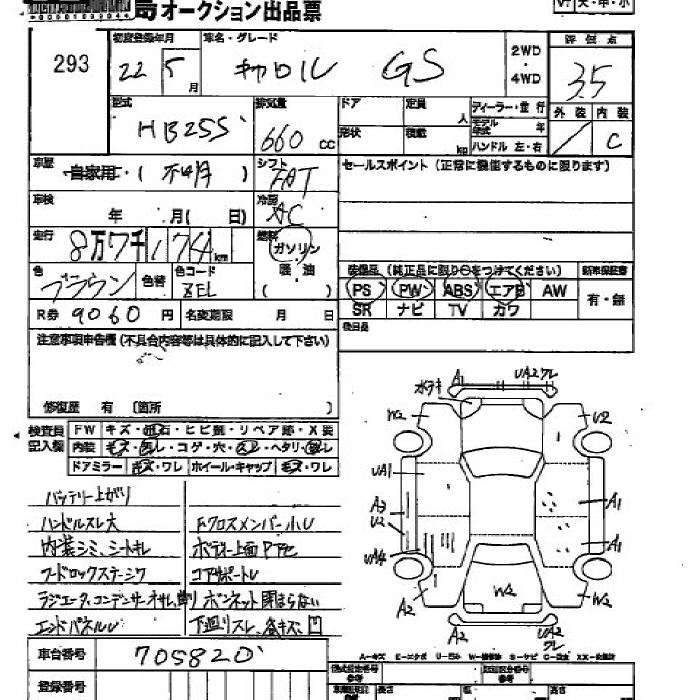 オークション出品票
大・中・小
293
初度登録年月
22 5 月
車名・グレード
キャロル GS
2WD
・
4WD
評価点
3.5
外装 内装
C
型式
HB25S
排気量
660 cc
ドア
定員 人
形状
積載 kg
ディーラー・並行
モデル年式 年
ハンドル 左・右
車歴
自家用・( 不明 )
シフト
FAT
セールスポイント (正常に機能するものに限ります)
車検
年 月( 日)
冷房
AC
走行
8万7千174 km
燃料
ガソリン
軽油
( )
色
ブラウン
色替
色コード
ZEL
装備品 (純正品に限り○をつけてください)
新車保証書
PS PW ABS エアB AW
SR ナビ TV カワ
有・無
R券 9060 円
名変期限 月 日
後日品
注意事項申告欄 (不具合内容等は具体的に記入して下さい)
修復歴 有 〔箇所 〕
検査員
記入欄
FW キズ・飛石・ヒビ割・リペア跡・X要
内装 キズ・汚レ・コゲ・穴・スレ・ヘタリ・
ドアミラー キズ・ワレ ホイール・キャップ キズ・ワレ
バッテリー上がり
ハンドルスレ大
内装シミ、シートキレ
Fクロスメンバー小U
コアサポートU
ラジエータ、コンデンサー
ボンネット閉まらない
エンドパネルU
下廻りスレ、
車台番号 705820
登録番号
A1
UA2 ワレ
W2
U2
UA1
A3
U2
UA4
A2
A1
A1
W2
W2
A2
UA2
ワレ
長さ
幅
高さ